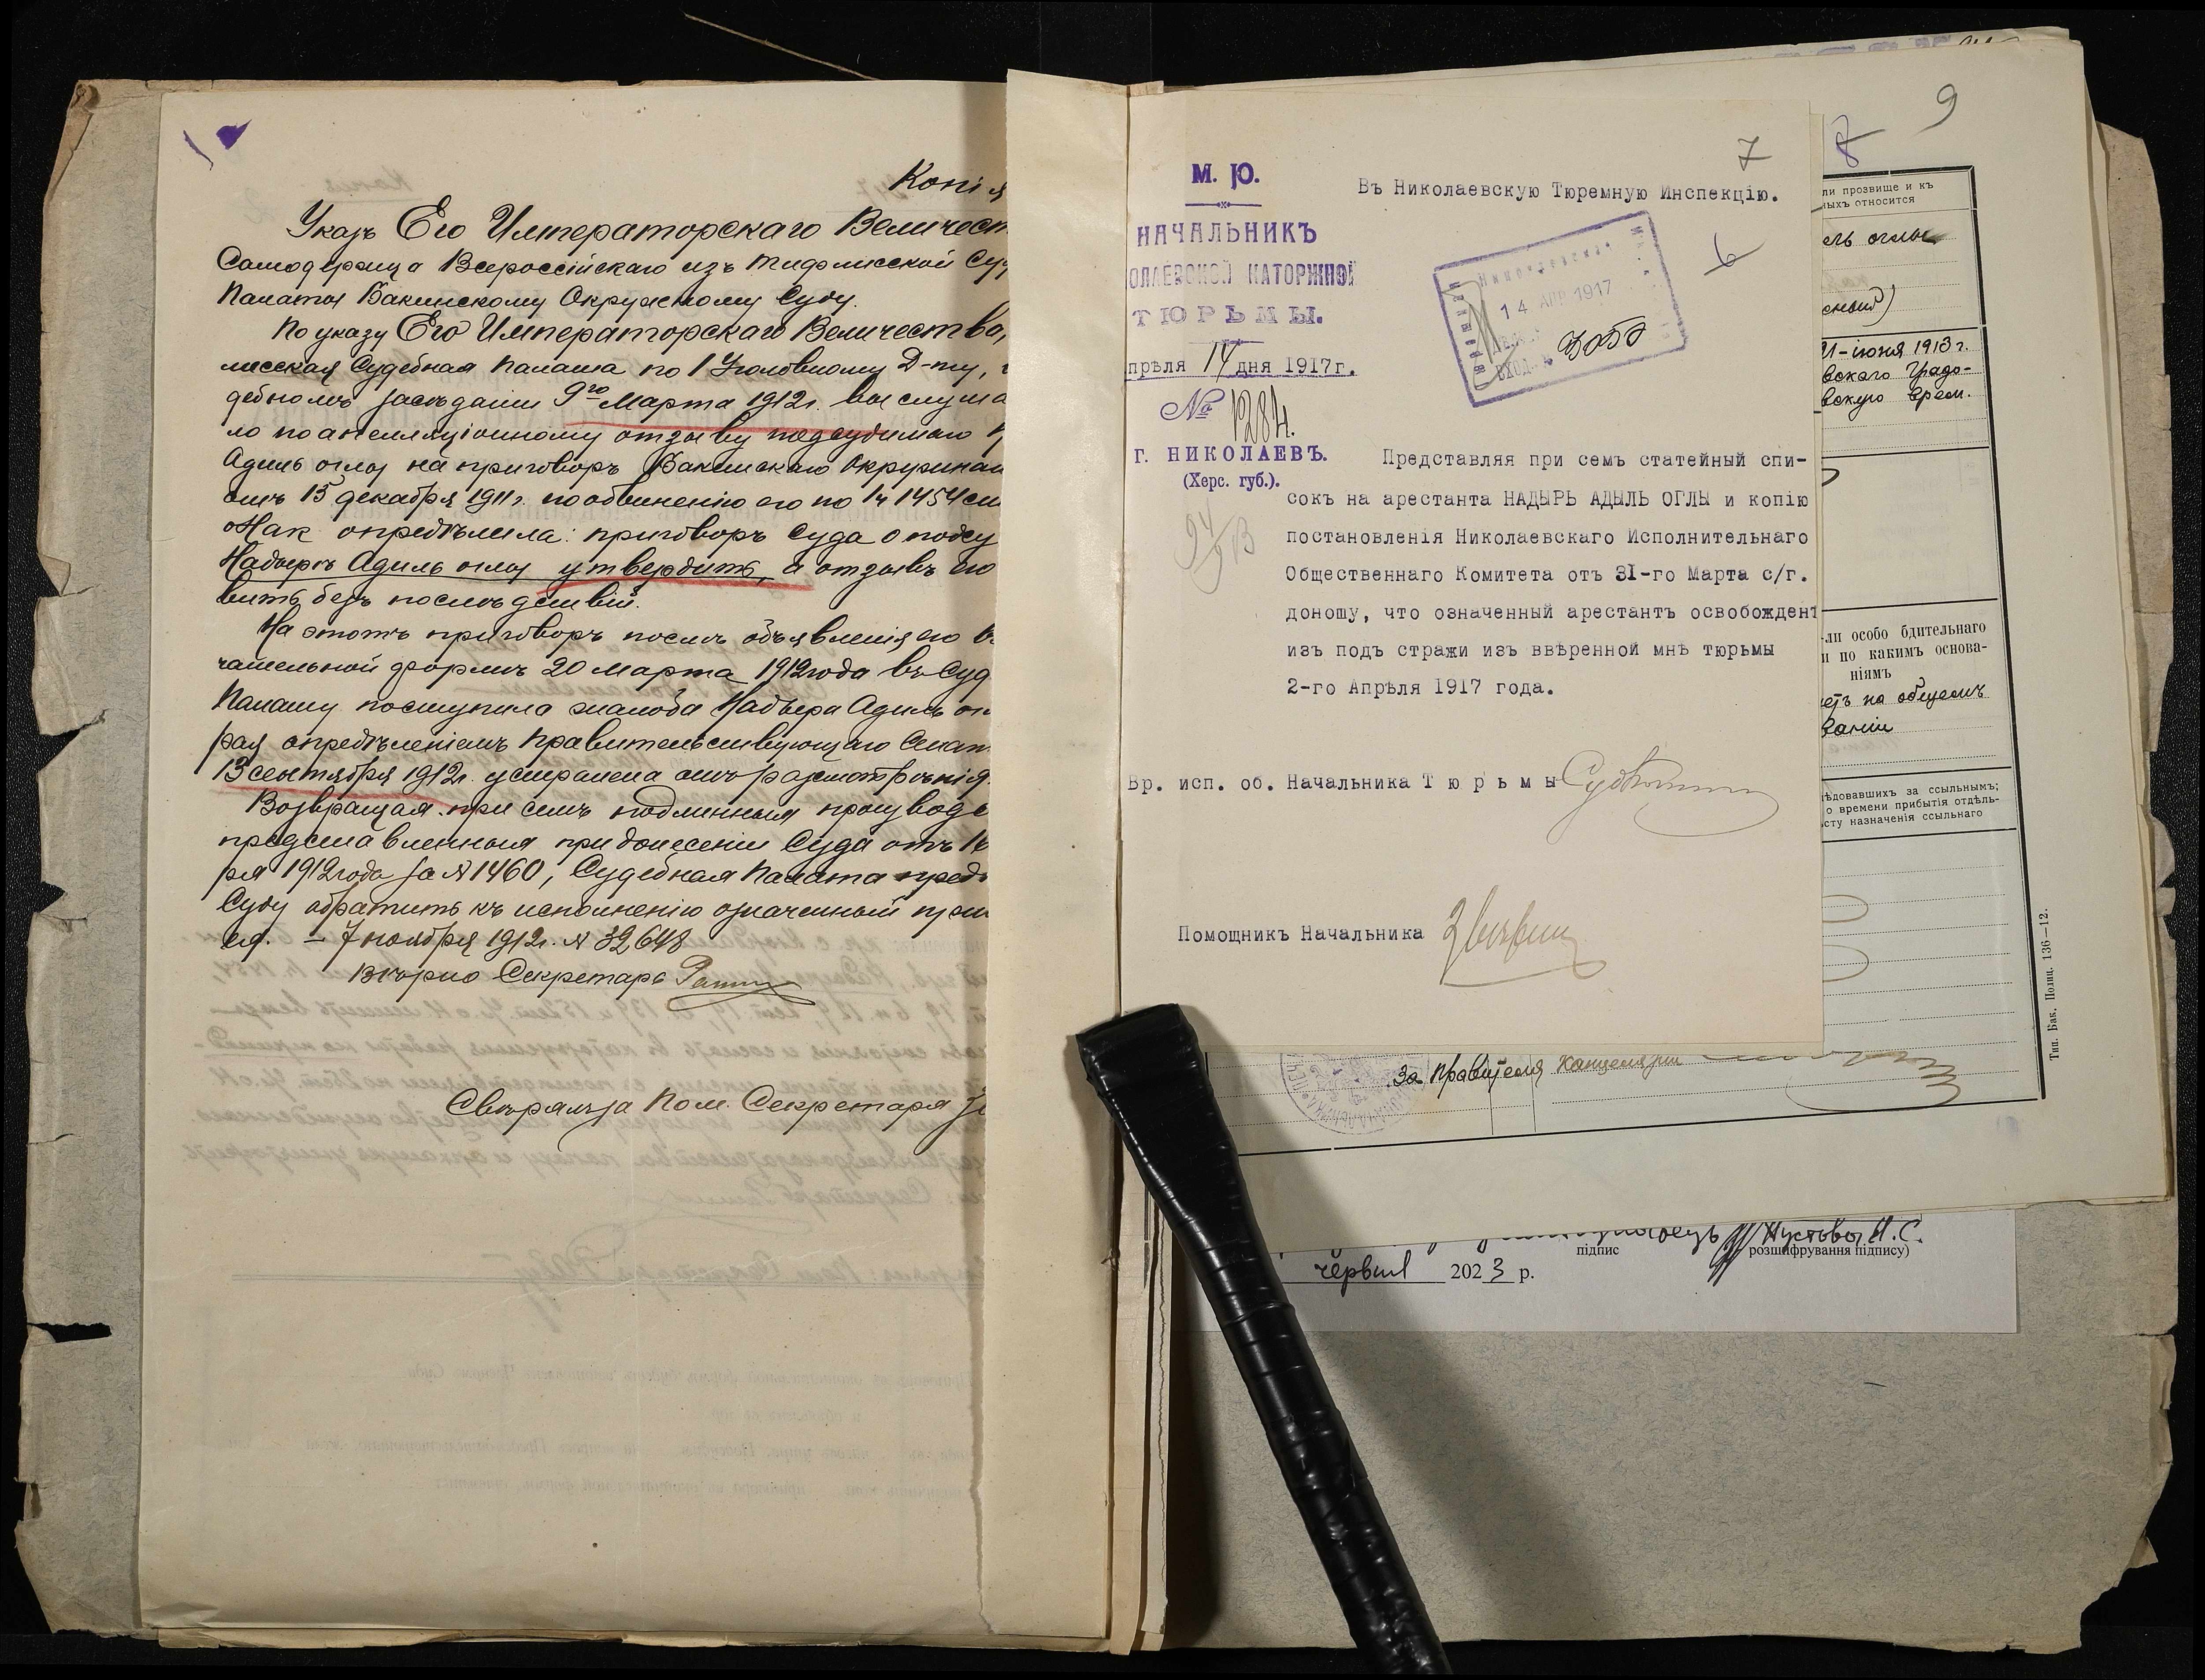 Копія
Указъ Его Императорскаго Величест
Самодержца Всероссійскаго изъ Тифлисской Су
Палаты Бакинскому Окружному Суду.
По указу Его Императорскаго Величества,
лисская Судебная Палата по 1 Уголовному Д-ту,
дебномъ засѣданіи 9го Марта 1912г. выслуша
ло по апелляціонному отзыву подсудимаго
Адиль оглы на приговоръ Бакинскаго Окружнаго
отъ 15 декабря 1911г. по обвиненію его по 1ч 1454 ст
оНак опредѣлила: приговоръ Суда о подсу
Надыръ Адиль оглы утвердить, а отзывъ его
вить безъ послѣдствій.
На этотъ приговоръ послѣ объявленія его в
чательной формѣ 20 Марта 1912 года въ Суд
Палату поступила жалоба Надыра Адиль ог
рая опредѣленіемъ Правительствующаго Сенат
13 сентября 1912г. устранена отъ разсмотрѣнія.
Возвращая при семъ подлинныя производс
представленныя при донесеніи Суда отъ 1
ря 1912 года за №1460, Судебная Палата пред
Суду обратить къ исполненію означенный при
ея. – 7 ноября 1912г. № 32648
Вѣрно Секретарь
Свѣрялъ за Пом. Секретаря
7
9
8
М. Ю.
Въ Николаевскую Тюремную Инспекцію.
6
НАЧАЛЬНИКЪ
ОЛАЕВСКОЙ КАТОРЖНОЙ
ТЮРЬМЫ.
14 АПР 1917
ВХОД. № 3050
прѣля 14 дня 1917г.
№ 1284.
г. НИКОЛАЕВЪ.
(Херс. губ.).
Представляя при семъ статейный спи-
сокъ на арестанта НАДЫРЬ АДЫЛЬ ОГЛЫ и копію
постановленія Николаевскаго Исполнительнаго
Общественнаго Комитета отъ 31-го Марта с/г.
доношу, что означенный арестантъ освобожденъ
изъ подъ стражи изъ ввѣренной мнѣ тюрьмы
2-го Апрѣля 1917 года.
Вр. исп. об. Начальника Тюрьмы
Помощникъ Начальника
ли прозвище и къ
ныхъ относится
ель оглы
21-іюня 1913г.
вскаго Градо-
вскую врем.
ли особо бдительнаго
и по какимъ основа-
ніямъ
етъ на общемъ
ваніи
ѣдовавшихъ за ссыльнымъ;
о времени прибытія отдѣль-
сту назначенія ссыльнаго
Тип. Бак. Полиц. 136—12.
За Правителя Канцеляріи
підпис
розшифрування підпису)
червня 2023 р.